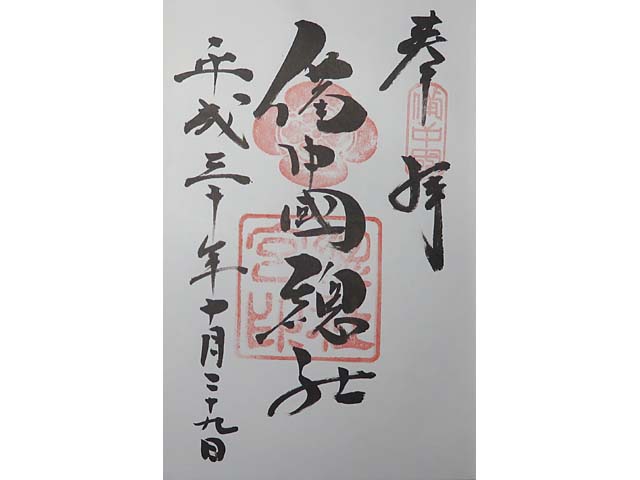 奉拝
備中國
備中國總社
平成三十年十月二十九日